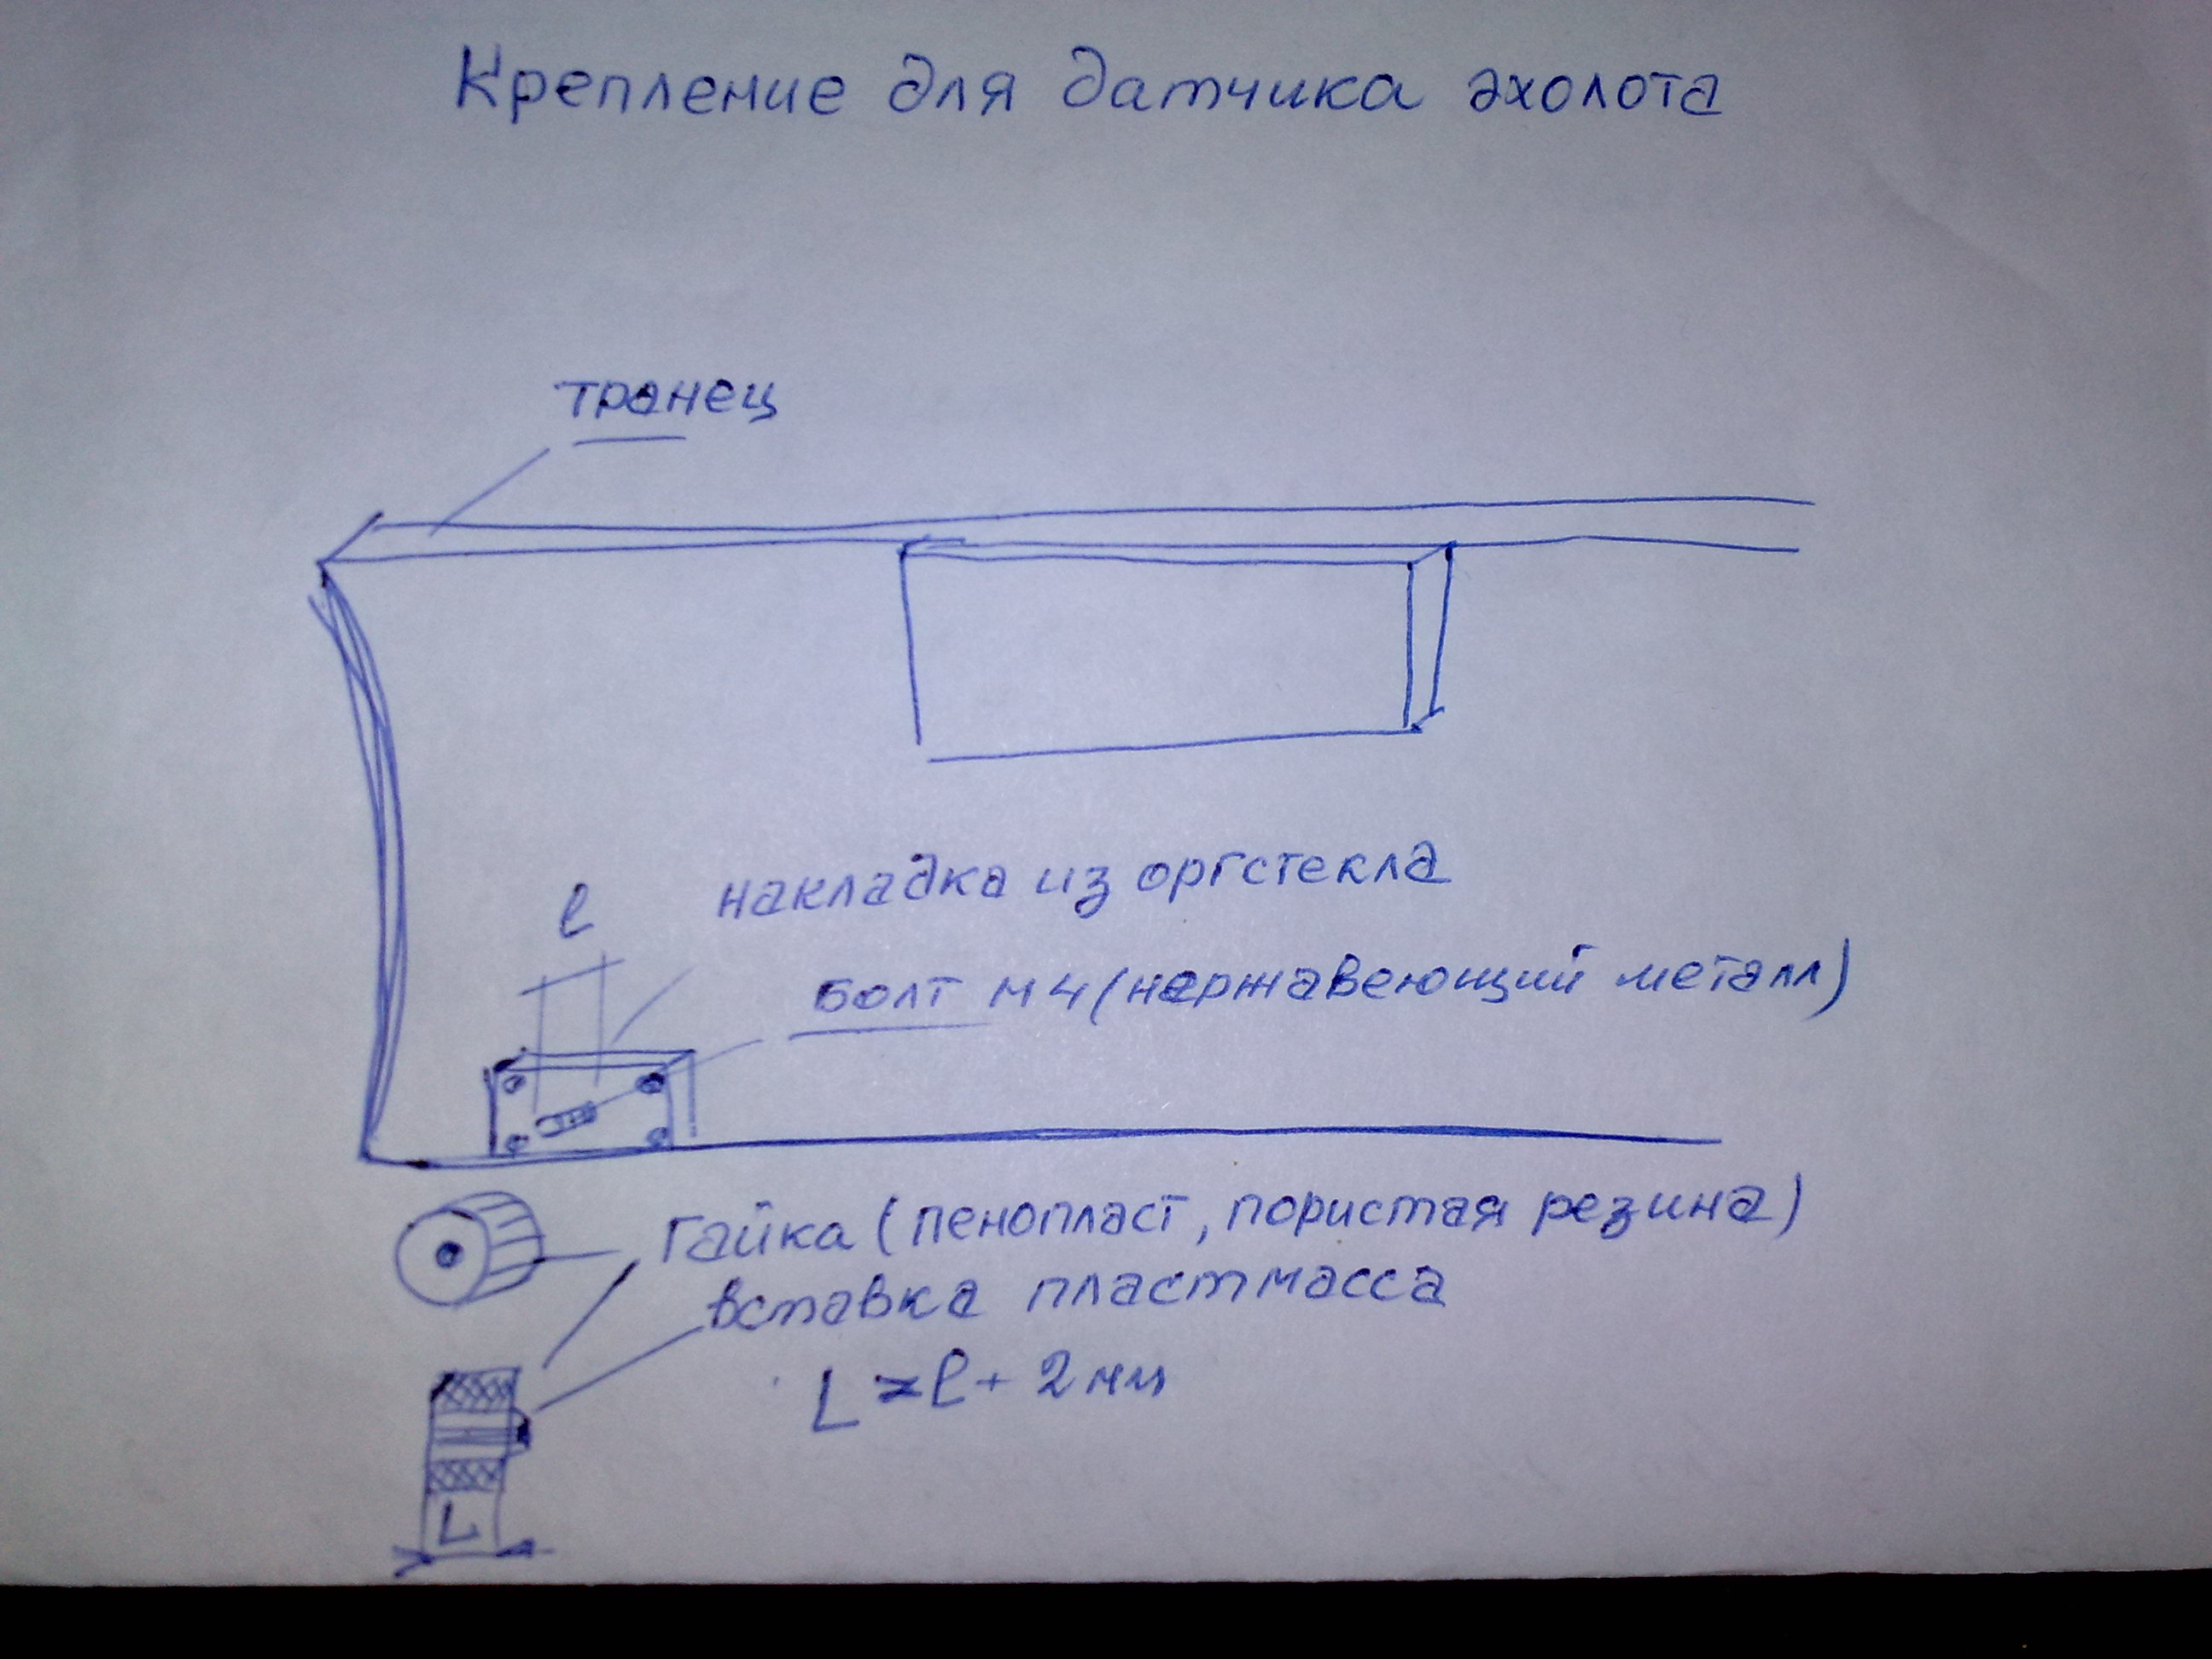 Крепление для датчика эхолота
транец
l
накладка из оргстекла
болт М4 (нержавеющий металл)
Гайка (пенопласт, пористая резина)
вставка пластмасса
L = l + 2 мм
L